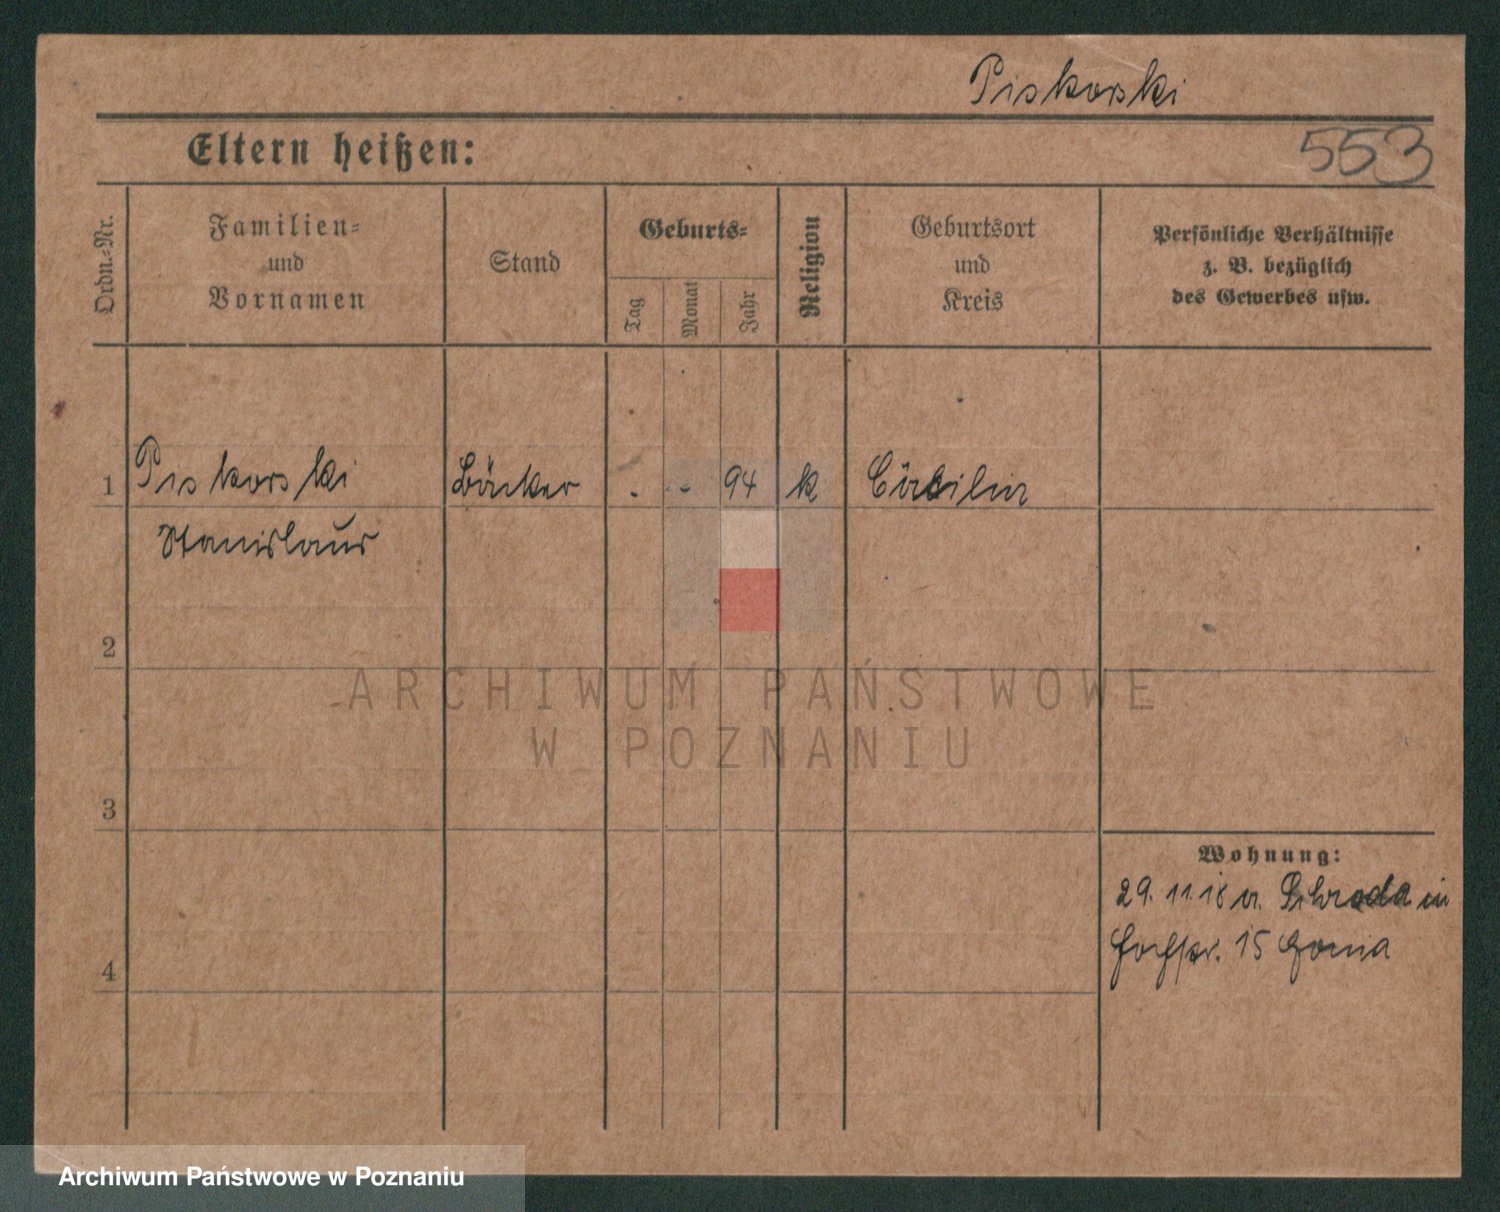 Piskorski
553
Eltern heißen:
Ordn.-Nr.
Familien-
und
Vornamen
Stand
Geburts-
Tag
Monat
Jahr
Religion
Geburtsort
und
Kreis
Persönliche Verhältnisse
z. B. bezüglich
des Gewerbes usw.
1 Piskorski Bäcker . -- 94 k
Stanislaus
2
ARCHIWUM PAŃSTWOWE
W POZNANIU
3
Wohnung:
29. 11. 18 v. Schroda in
15 Gonia
4
Archiwum Państwowe w Poznaniu